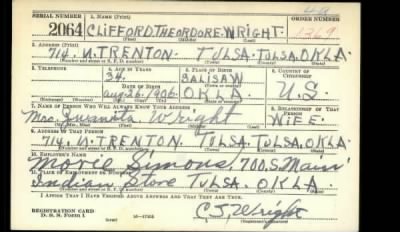 SERIAL NUMBER 1. NAME (Print) ORDER NUMBER
2064 CLIFFORD. THEORDORE. WRIGHT. 1369
2. ADDRESS (Print)
714. N. TRENTON. TULSA. TULSA. OKLA.
3. TELEPHONE 4. AGE IN YEARS 5. PLACE OF BIRTH 6. COUNTRY OF CITIZENSHIP
34. SALISAW
DATE OF BIRTH
Aug. 26. 1906. OKLA. U.S.
7. NAME OF PERSON WHO WILL ALWAYS KNOW YOUR ADDRESS 8. RELATIONSHIP OF THAT PERSON
Mrs. Juanita Wright WIFE.
9. ADDRESS OF THAT PERSON
714. N. TRENTON. TULSA. TULSA. OKLA.
10. EMPLOYER'S NAME
Movie Simons, 700, S. Main
11. PLACE OF EMPLOYMENT OR BUSINESS
Indian Store TULSA. OKLA.
I AFFIRM THAT I HAVE VERIFIED ABOVE ANSWERS AND THAT THEY ARE TRUE.
REGISTRATION CARD
D. S. S. Form 1 C.T. Wright